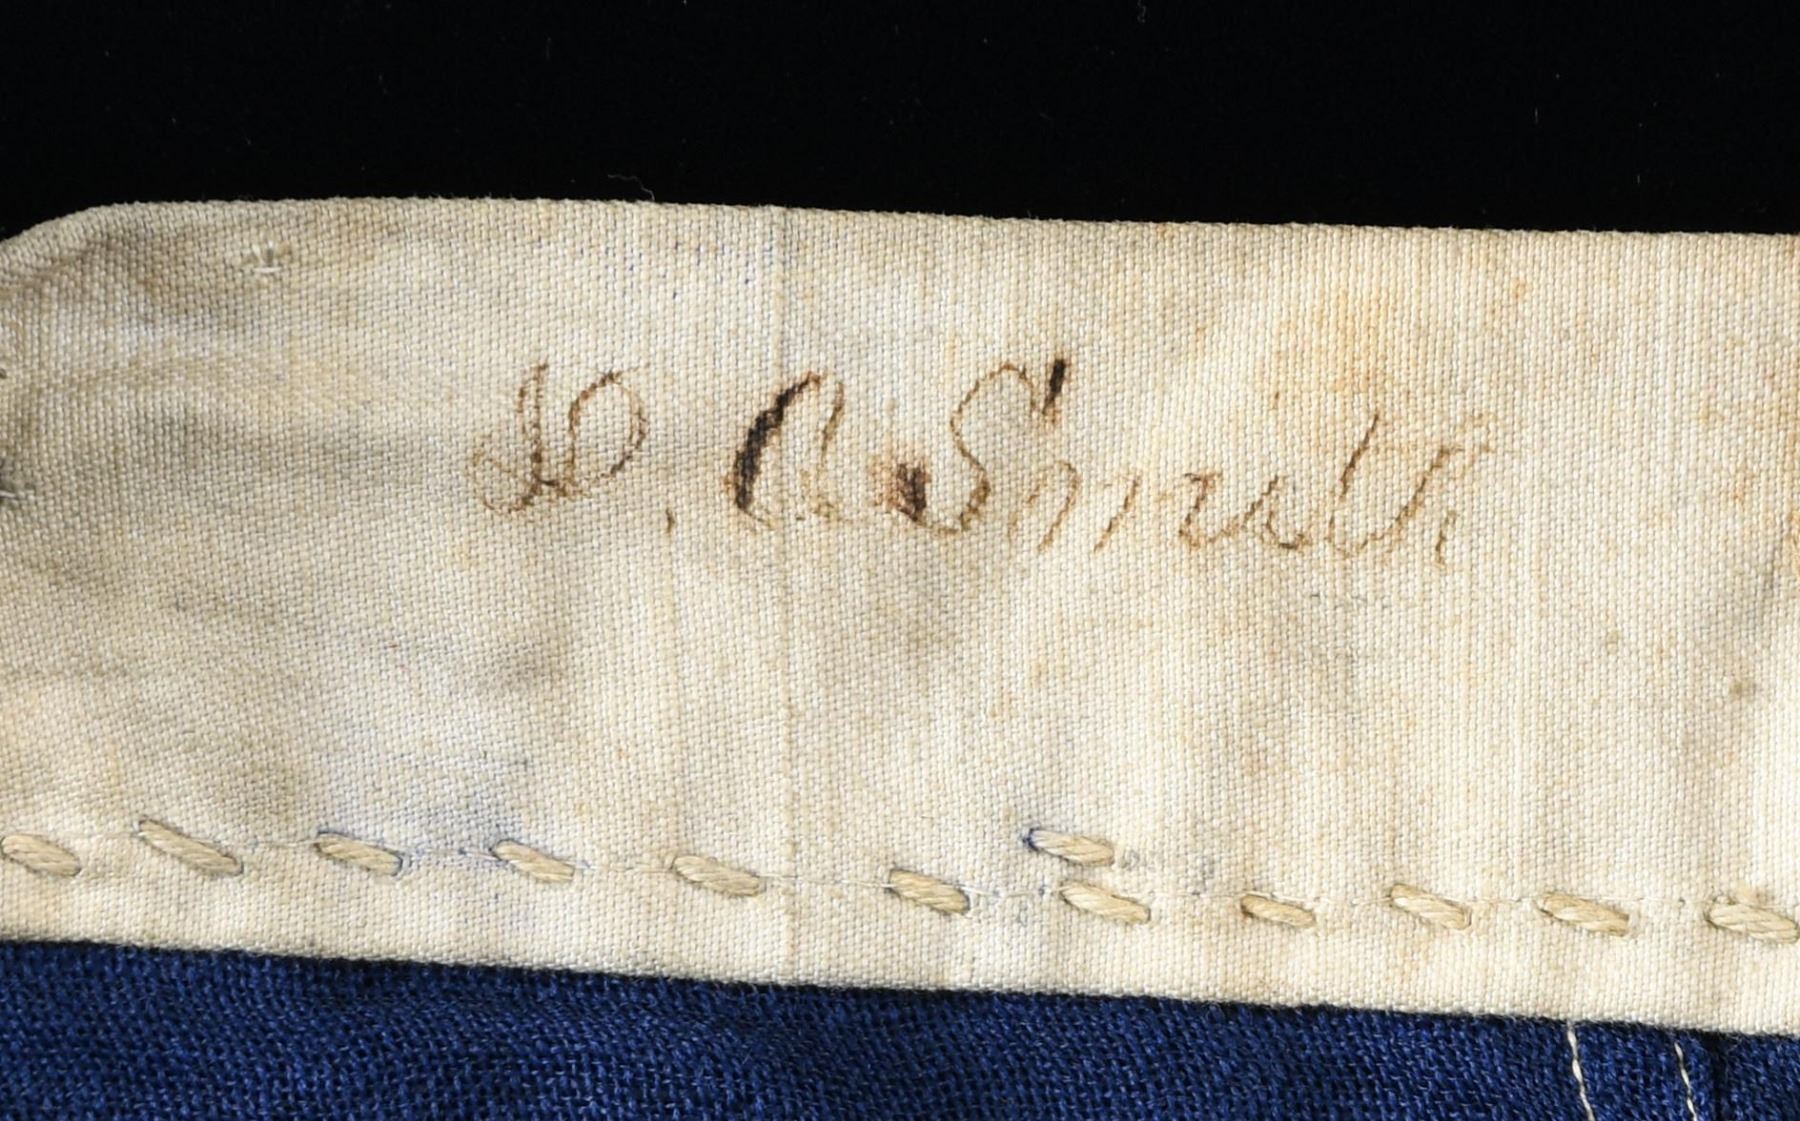 D. A. Smith